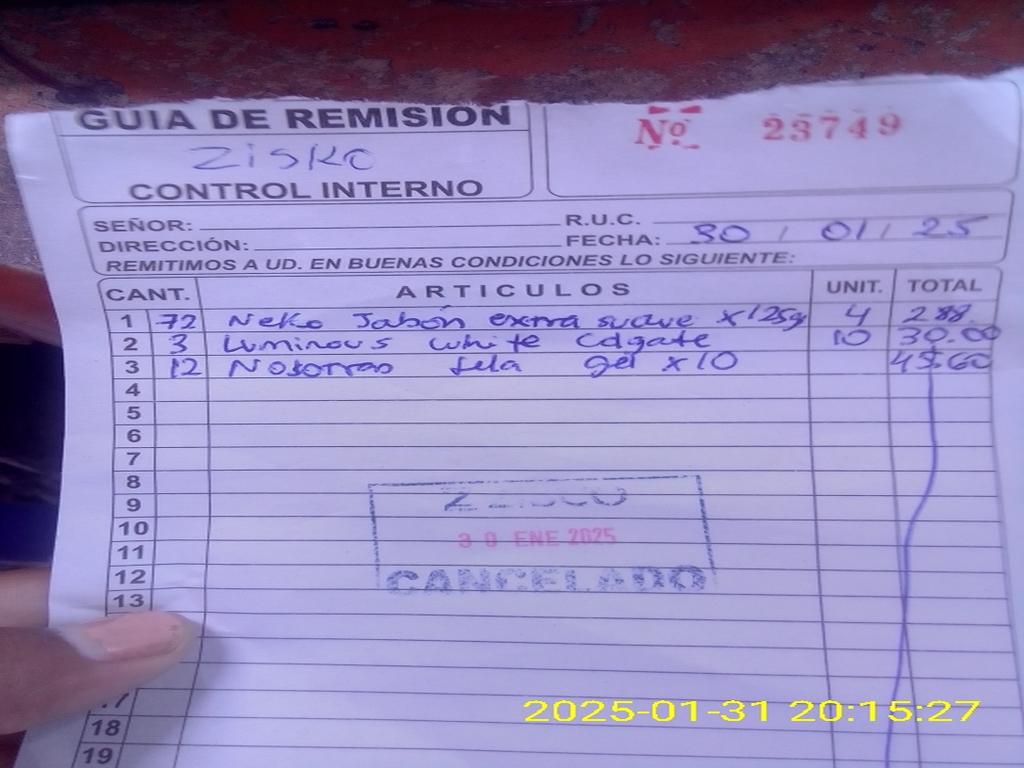 GUIA DE REMISIÓN
Zisko
CONTROL INTERNO
Nº 23749
SEÑOR: R.U.C.
DIRECCIÓN: FECHA: 30 / 01 / 25
REMITIMOS A UD. EN BUENAS CONDICIONES LO SIGUIENTE:
CANT. ARTICULOS UNIT. TOTAL
1 72 Neko Jabón extra suave x125g 4 288
2 3 Luminous White Colgate 10 30.00
3 12 Nosotras tela gel x10 45.60
4
5
6
7
8
9
10
11
12
13
30 ENE 2025
CANCELADO
17
18
19
2025-01-31 20:15:27